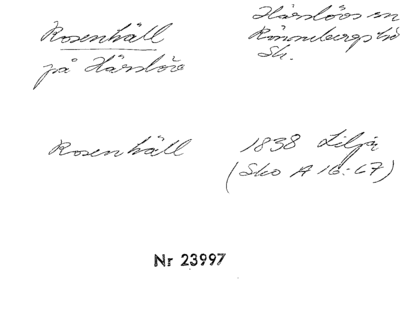 Rosenhäll
på Härslöv
Härslövs sn
Rönnebergs hd
Sk.
Rosenhäll 1838 Lilja
(Sko A 16:67)
Nr 23997